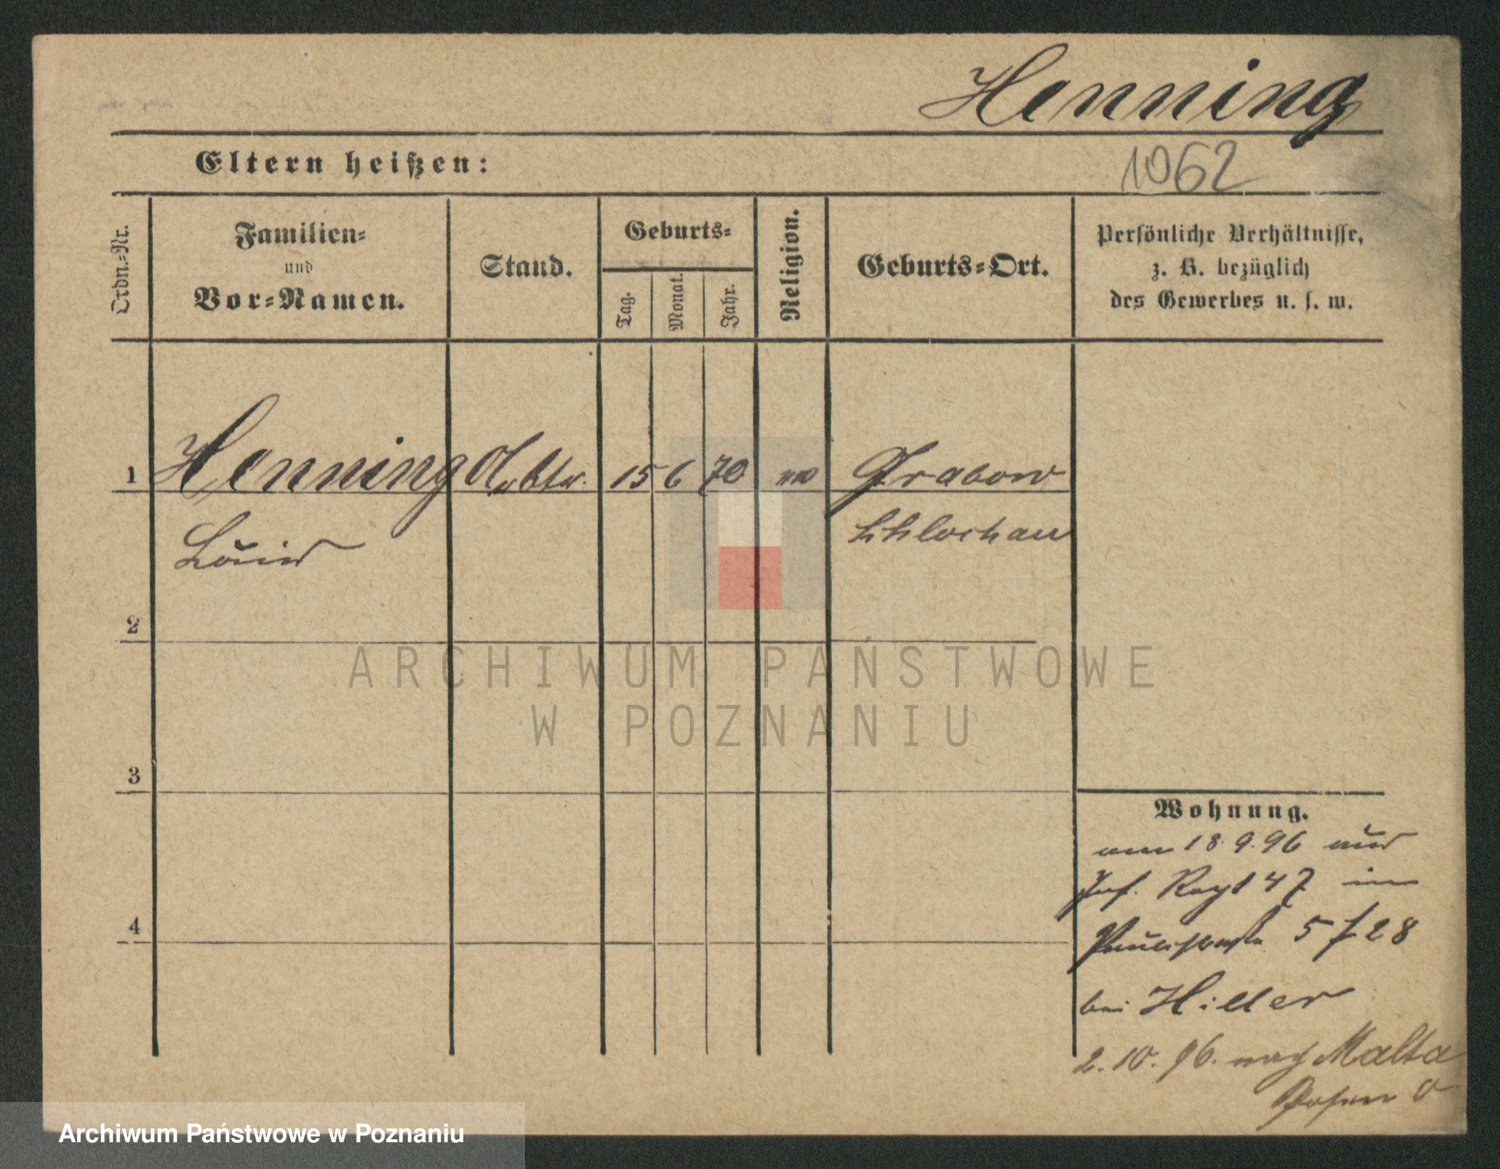 Henning
Eltern heißen:
1062
Ordn.-Nr.
Familien-
und
Vor-Namen.
Stand.
Geburts-
Tag.
Monat.
Jahr.
Religion.
Geburts-Ort.
Persönliche Verhältnisse,
z. B. bezüglich
des Gewerbes u. s. w.
1
Henning
15
6
70
Grabow
Louis
Schlochau
2
ARCHIWUM PAŃSTWOWE
W POZNANIU
3
Wohnung.
am 18.9.96 aus
Inf. Regt 47 in
4
5 28
bei Hiller
2.10.96. nach Malta
Posen O
Archiwum Państwowe w Poznaniu